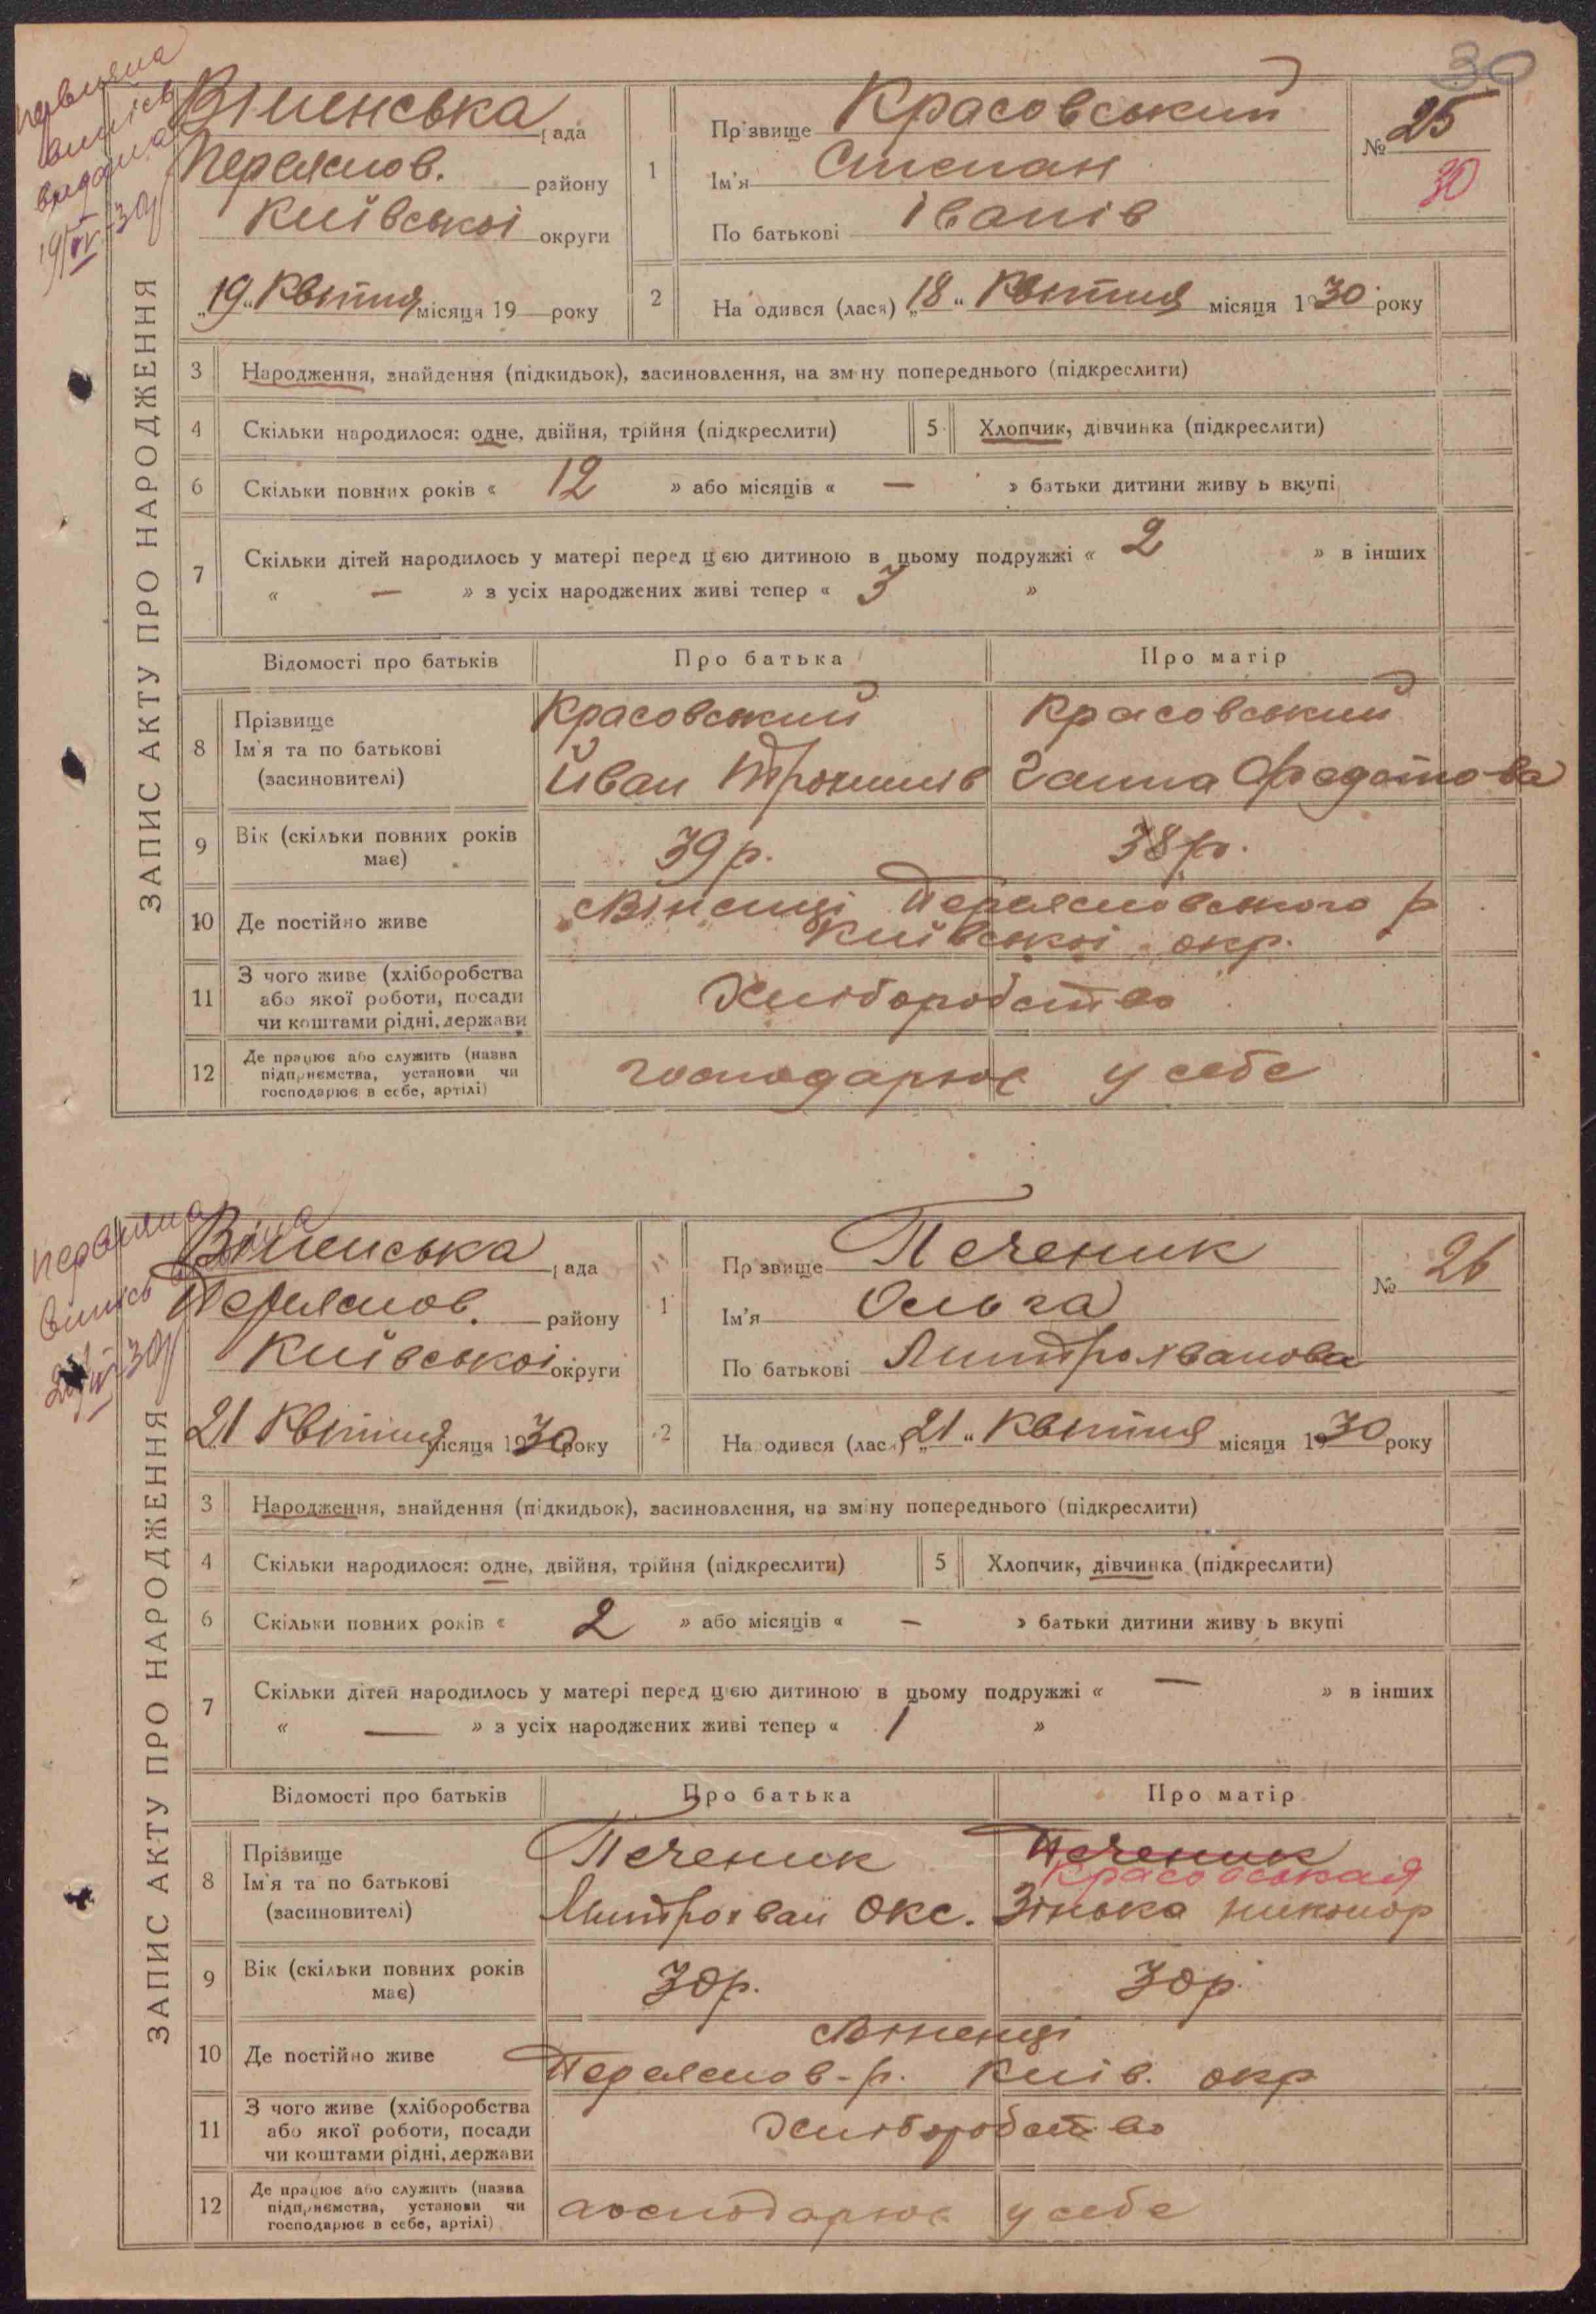 30
первисна
випісь
видана
19/IV 30р
ЗАПИС АКТУ ПРО НАРОДЖЕННЯ
Віненська рада
Переяслов. району
Київської округи
„19“ Квітня місяця 19 року
1
Прізвище Красовський
Ім'я Степан
По батькові Іванів
№ 25
30
2
Народився (лася) „18“ Квітня місяця 1930 року
3 Народження, знайдення (підкидьок), засиновлення, на зміну попереднього (підкреслити)
4 Скільки народилося: одне, двійня, трійня (підкреслити) 5 Хлопчик, дівчинка (підкреслити)
6 Скільки повних років « 12 » або місяців « — » батьки дитини живуть вкупі
7 Скільки дітей народилось у матері перед цією дитиною в цьому подружжі « 2 » в інших
« — » з усіх народжених живі тепер « 3 »
Відомості про батьків Про батька Про матір
8 Прізвище Красовський Красовський
Ім'я та по батькові Йван Ганна Федотова
(засиновителі)
9 Вік (скільки повних років має) 39 р. 38 р.
10 Де постійно живе с Віненці Переясловського р
Київської окр.
11 З чого живе (хліборобства або якої роботи, посади чи коштами рідні, держави Хліборобство
12 Де працює або служить (назва підприємства, установи чи господарює в себе, артілі) господарює у себе
первисна
випісь
21/IV 30р
ЗАПИС АКТУ ПРО НАРОДЖЕННЯ
Віненська рада
Переяслов. району
Київської округи
21 Квітня місяця 1930 року
1
Прізвище Печеник
Ім'я Ольга
По батькові Митрохванова
№ 26
2
Народився (лася) „21“ Квітня місяця 1930 року
3 Народження, знайдення (підкидьок), засиновлення, на зміну попереднього (підкреслити)
4 Скільки народилося: одне, двійня, трійня (підкреслити) 5 Хлопчик, дівчинка (підкреслити)
6 Скільки повних років « 2 » або місяців « — » батьки дитини живуть вкупі
7 Скільки дітей народилось у матері перед цією дитиною в цьому подружжі « — » в інших
« — » з усіх народжених живі тепер « 1 »
Відомості про батьків Про батька Про матір
8 Прізвище Печеник Печеник
Красовськая
Ім'я та по батькові Митрохван Окс. Зінька никонор
(засиновителі)
9 Вік (скільки повних років має) 30р. 30р.
10 Де постійно живе с Віненці
Переяслов-р. Київ. окр
11 З чого живе (хліборобства або якої роботи, посади чи коштами рідні, держави Хліборобство
12 Де працює або служить (назва підприємства, установи чи господарює в себе, артілі) господарює у себе